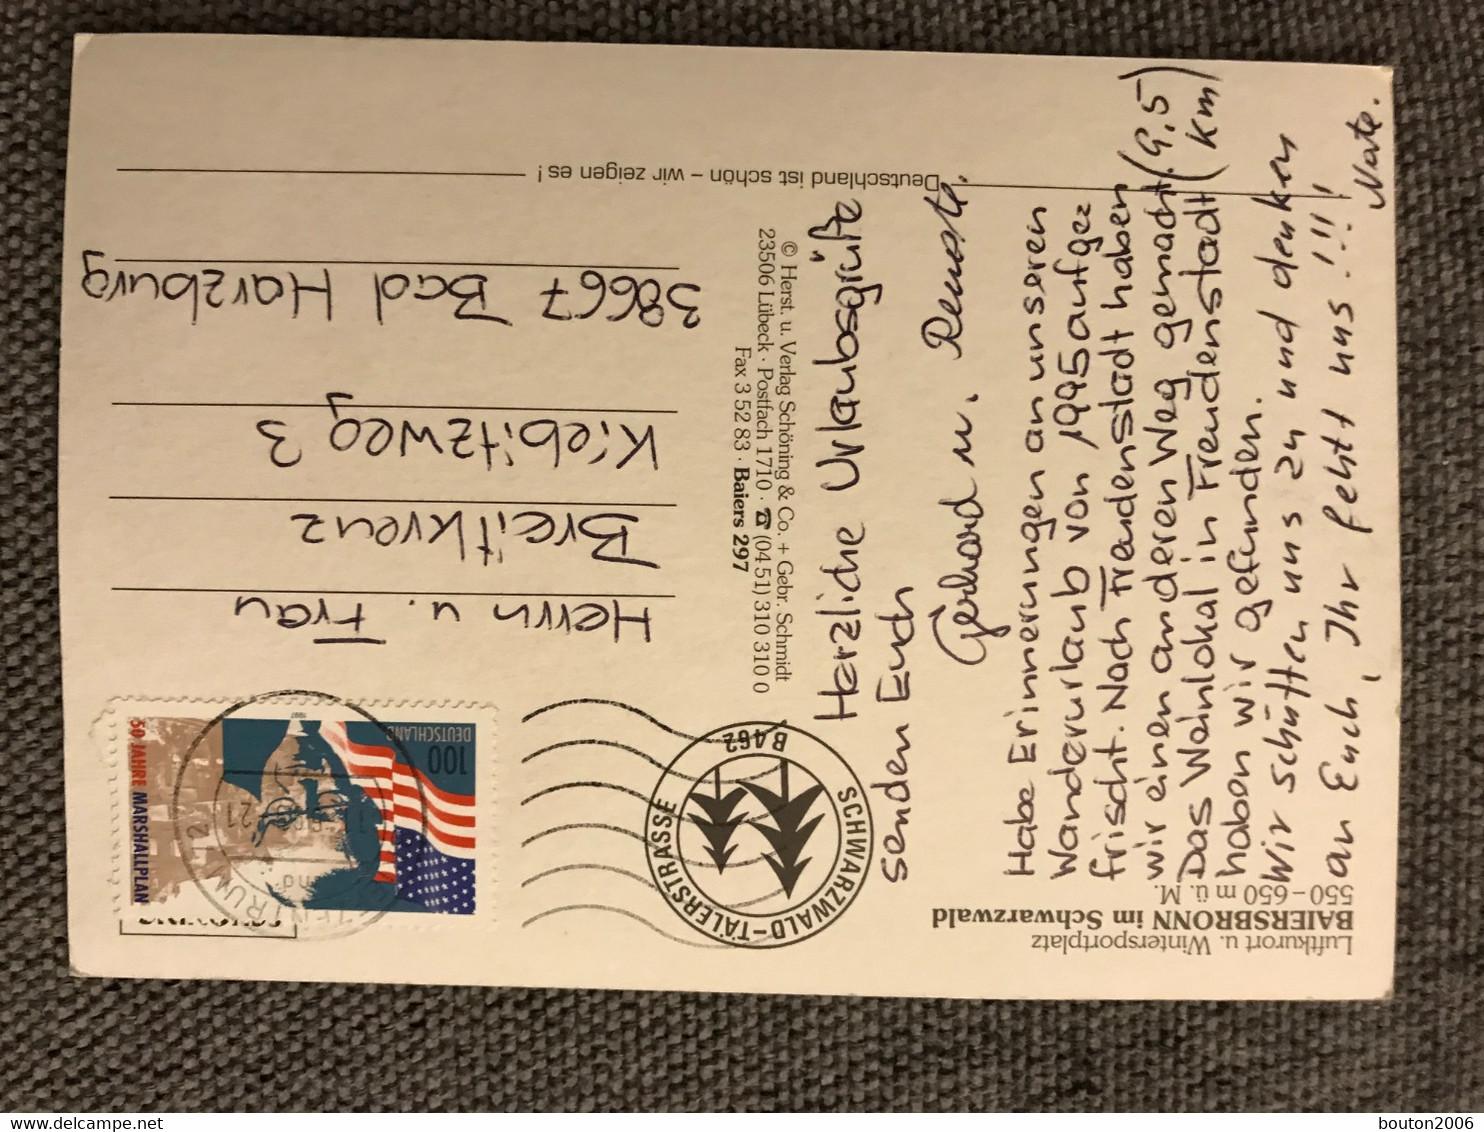 Luftkurort u. Wintersportplatz
BAIERSBRONN im Schwarzwald
550–650 m ü. M.
Herzliche Urlaubsgrüße
senden Euch
Gerhard u. Renate.
Habe Erinnerungen an unseren
Wanderurlaub von 1995 aufge
frischt. Nach Freudenstadt haben
wir einen anderen Weg gemacht. (9,5
Das Weinlokal in Freudenstadt km)
haben wir gefunden.
Wir schütten uns zu und denken
an Euch, Ihr fehlt uns!!!!
Nate.
Deutschland ist schön – wir zeigen es!
© Herst. u. Verlag Schöning & Co. + Gebr. Schmidt
23506 Lübeck · Postfach 1710 · ☎ (04 51) 310 310 0
Fax 3 52 83 · Baiers 297
SCHWARZWALD-TÄLERSTRASSE
B 462
50 JAHRE MARSHALLPLAN
DEUTSCHLAND
100
1997
21
Herrn u. Frau
Breitkreuz
Kiebitzweg 3
38667 Bad Harzburg
delcampe.net
bouton2006